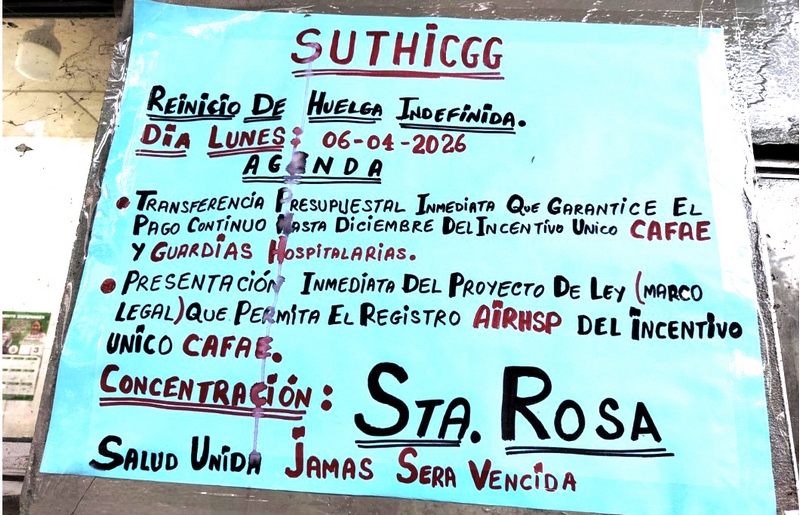 SUTHICGG
REINICIO DE HUELGA INDEFINIDA.
DIA LUNES: 06-04-2026
AGENDA
• TRANSFERENCIA PRESUPUESTAL INMEDIATA QUE GARANTICE EL
PAGO CONTINUO HASTA DICIEMBRE DEL INCENTIVO UNICO CAFAE
Y GUARDIAS HOSPITALARIAS.
• PRESENTACIÓN INMEDIATA DEL PROYECTO DE LEY (MARCO
LEGAL) QUE PERMITA EL REGISTRO AIRHSP DEL INCENTIVO
UNICO CAFAE.
CONCENTRACIÓN: STA. ROSA
SALUD UNIDA JAMAS SERA VENCIDA